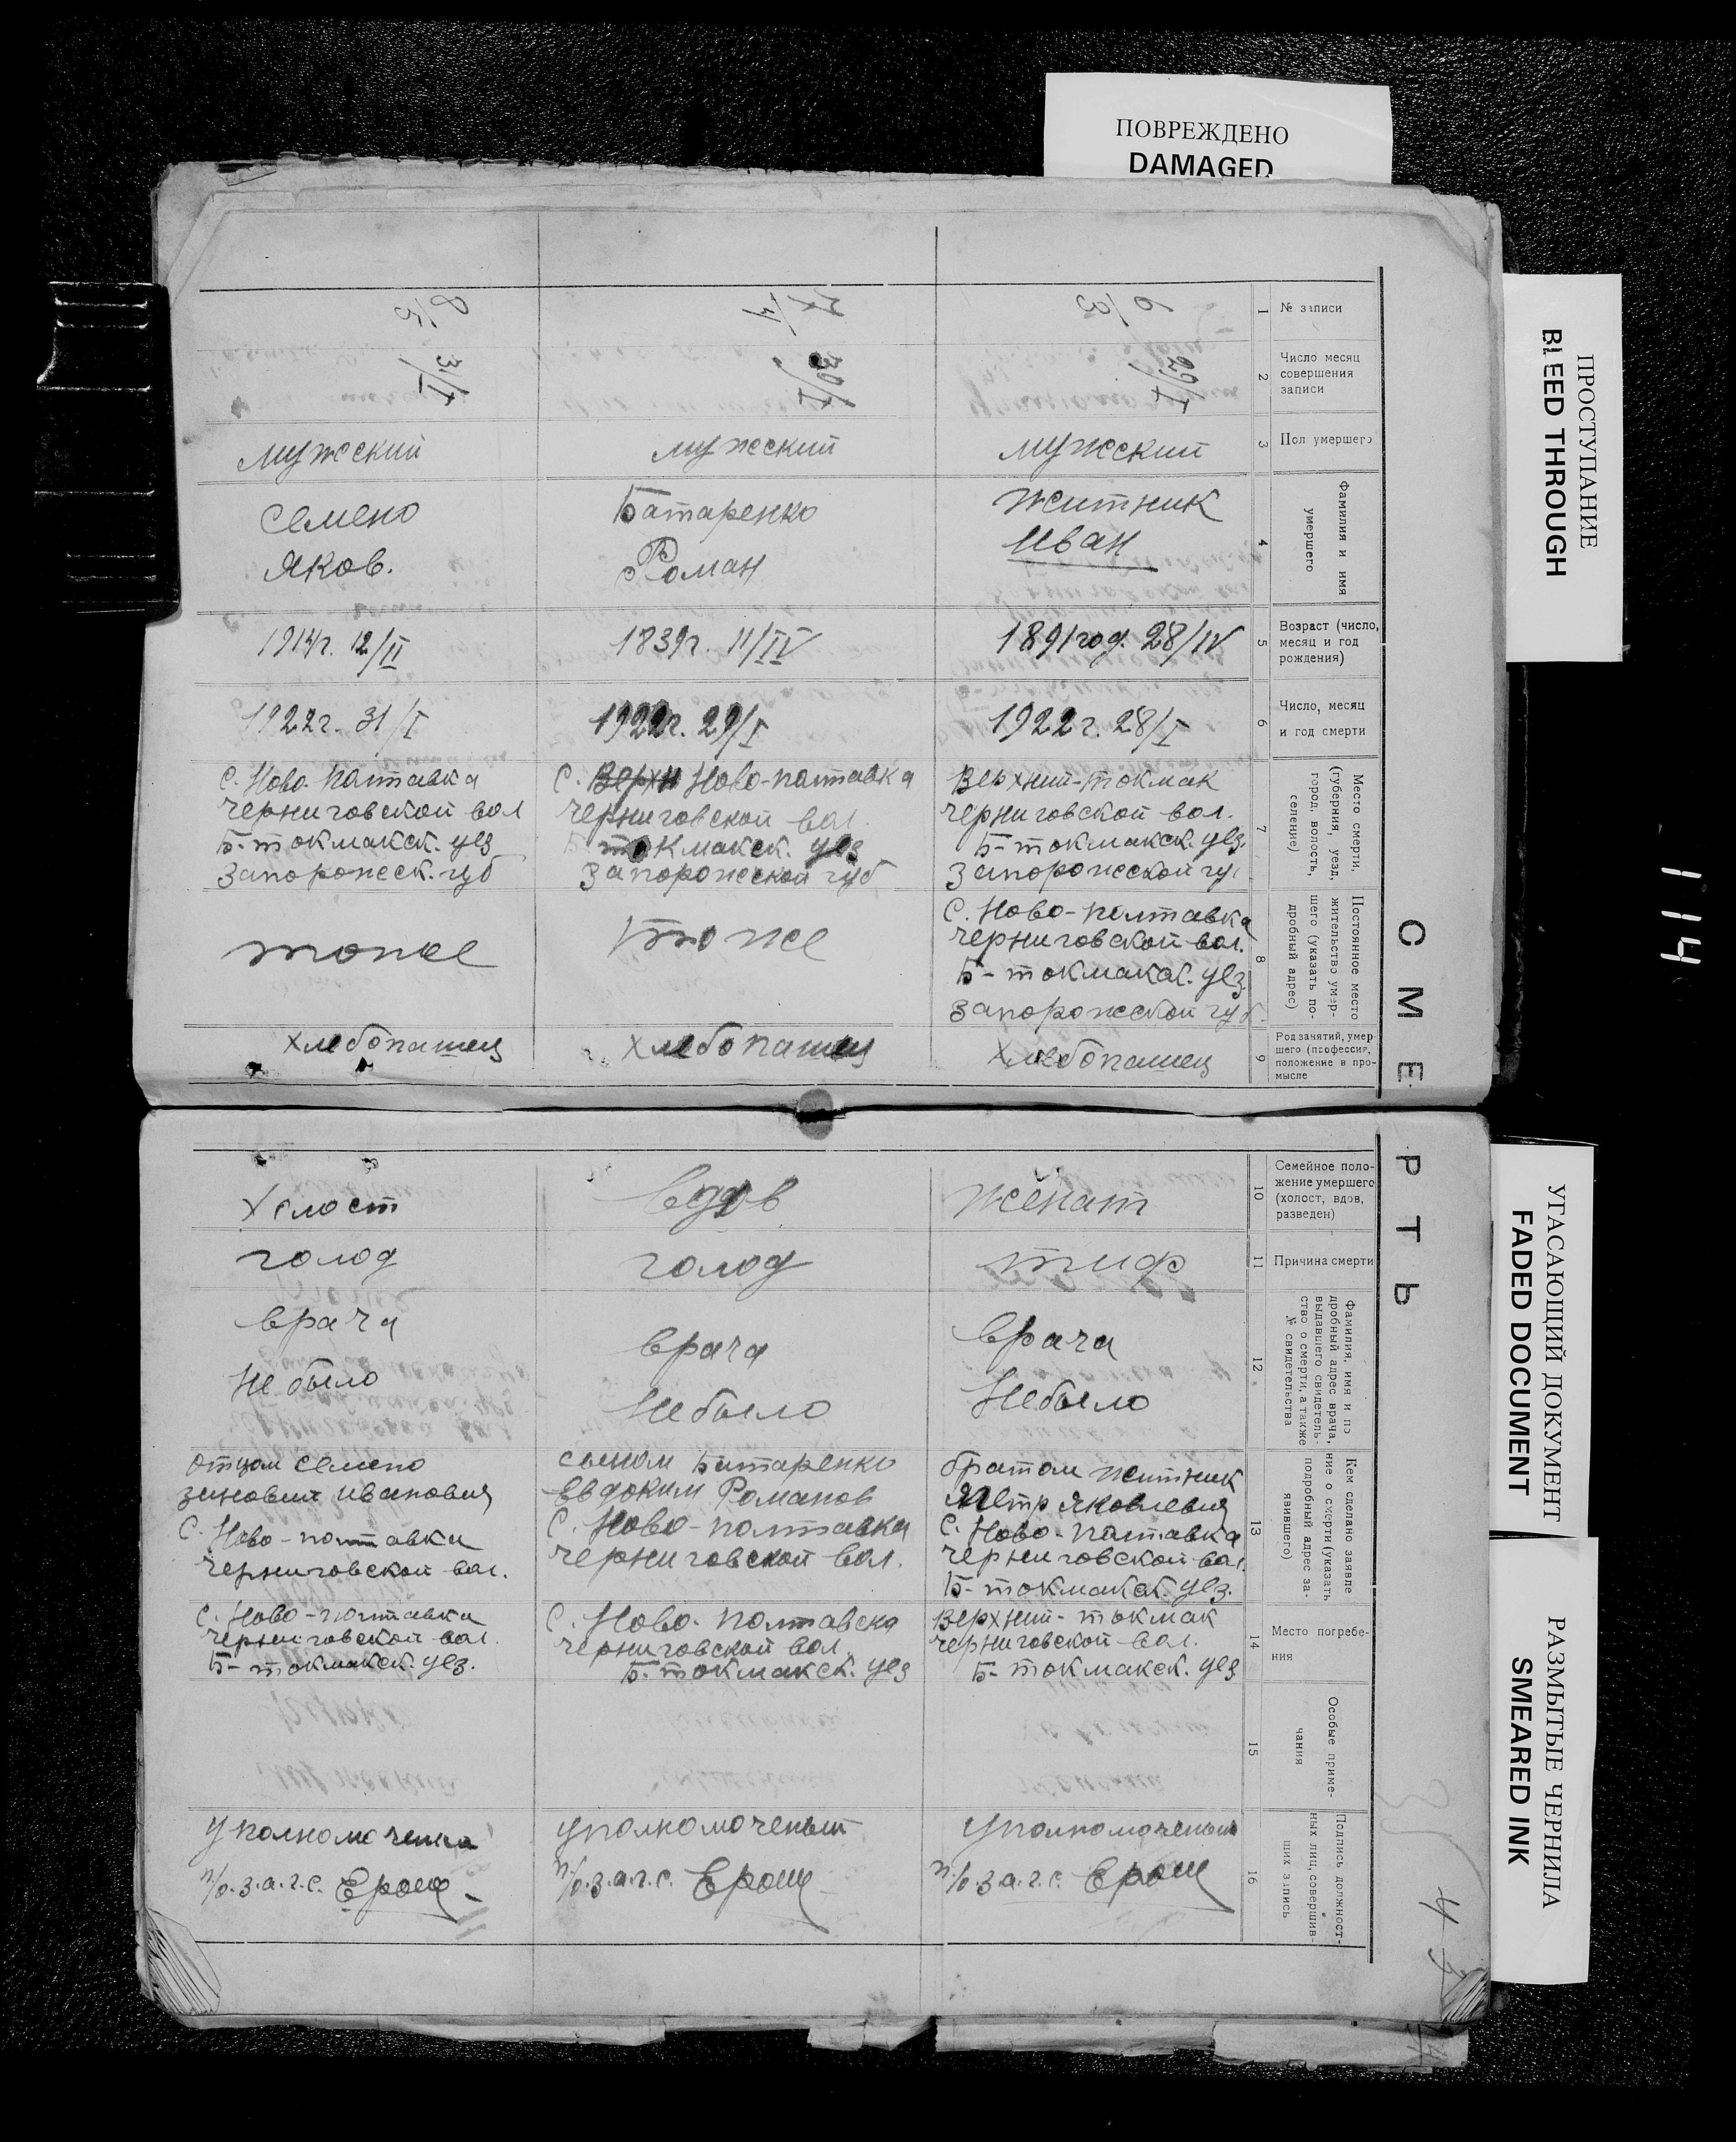 ПОВРЕЖДЕНО
DAMAGED
ПРОСТУПАНИЕ
BLEED THROUGH
УГАСАЮЩИЙ ДОКУМЕНТ
FADED DOCUMENT
РАЗМЫТЫЕ ЧЕРНИЛА
SMEARED INK
114
СМЕРТЬ
1
№ записи
2
Число месяц
совершения
записи
29/I
30/I
31/I
3
Пол умершего
мужской
мужеский
мужеский
4
Фамилия и имя
умершего
Житник
Иван
Батаренко
Роман
Семено
Яков.
5
Возраст (число,
месяц и год
рождения)
1891 год. 28/IV
1839 г. 11/IV
1914 г. 12/II
6
Число, месяц
и год смерти
1922 г. 28/I
1922 г. 29/I
1922 г. 31/I
7
Место смерти,
(губерния, уезд,
город, волость,
селение)
Верхний-токмак
черниговской вол.
Б-токмакск. уез.
Запорожеской гу
С. Верхн Ново-полтавка
черниговской вол.
Б токмакск. уез
Запорожеской губ
С. Ново-полтавка
черниговской вол
Б-токмакск. уез
Запорожеск. губ
8
Постоянное место
жительство умер-
шего (указать по-
дробный адрес)
С. Ново-полтавка
черниговской вол.
Б-токмакск. уез.
Запорожеской губ.
тоже
тоже
9
Род занятий, умер
шего (профессия,
положение в про-
мысле
Хлебопашец
Хлебопашец
Хлебопашец
10
Семейное поло-
жение умершего
(холост, вдов,
разведен)
женат
вдов
Холост
11
Причина смерти
тиф
голод
голод
12
Фамилия, имя и по
дробный адрес врача,
выдавшего свидетель-
ство о смерти, а также
№ свидетельства
врача
Небыло
врача
Небыло
врача
Не было
13
Кем сделано заявле
ние о смерти (указать
подробный адрес за-
явившего)
братом житник
Петр Яковлевич
С. Ново-полтавка
черниговской вол.
Б-токмакск. уез.
сыном Батаренко
Евдоким Романов
С. Ново-полтавка
черниговской вол.
отцом Семено
зиновий иванович
С. Ново-полтавка
черниговской вол.
14
Место погребе-
ния
Верхний-токмак
черниговской вол.
Б-токмакск. уез
С. Ново-полтавка
черниговской вол
Б-токмакск. уез
С. Ново-полтавка
черниговской вол.
Б-токмакск. уез.
15
Особые приме-
чания
16
Подпись должност-
ных лиц, совершив-
ших запись
Уполномоченый
п/о.з.а.г.с. Ерощ
Уполномоченый
п/о.з.а.г.с. Ерощ
Уполномочены
п/о.з.а.г.с. Ерощ